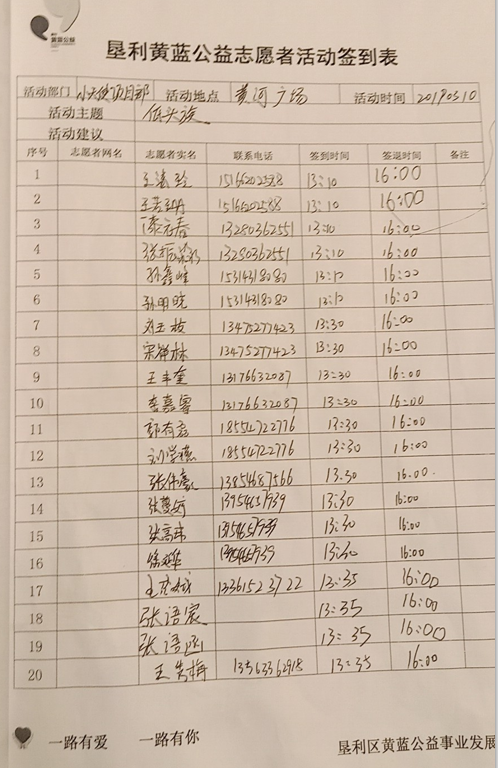 黄蓝公益
垦利黄蓝公益志愿者活动签到表
活动部门 小天使项目部 活动地点 黄河广场 活动时间 20190310
活动主题 低头族
活动建议
序号 志愿者网名 志愿者实名 联系电话 签到时间 签退时间 备注
1 13:10 16:00
2 13:10 16:00
3 13280362551 13:10 16:00
4 13280362551 13:10 16:00
5 孙鑫峰 15314318080 13:10 16:00
6 孙明晓 15314318080 13:10 16:00
7 刘玉枝 13475277423 13:30 16:00
8 13475277423 13:30 16:00
9 王丰奎 13176632087 13:30 16:00
10 李嘉睿 13176632087 13:30 16:00
11 郭有君 18554722776 13:30 16:00
12 刘学德 18554722776 13:30 16:00
13 张伟豪 13854687566 13:30 16:00
14 13:30 16:00
15 13:30 16:00
16 13:30 16:00
17 13:35 16:00
18 张语宸 13:35 16:00
19 张语涵 13:35 16:00
20 13:35 16:00
一路有爱 一路有你
垦利区黄蓝公益事业发展